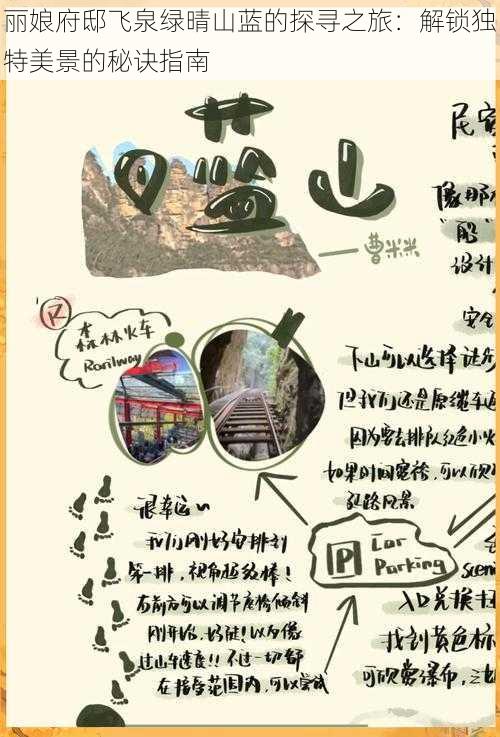 丽娘府邸飞泉绿晴山蓝的探寻之旅：解锁独
特美景的秘诀指南
蓝山
——曹米米
森林火车
Railway
很幸运~
我们刚好排到
第一排，视角超级棒！
右前方可以调节座椅倾斜
刚开始，好陡！以为像
过山车速度！！不过一切都
在接受范围内，可以尝试
设计
安全
下山可以选择徒步
但我们还是原缆车返
因为要去排队红色小火
如果时间宽裕，可以欣
沿路风景
P
Car
Parking
scen
入口兑换
找到黄色标
可观赏瀑布，三